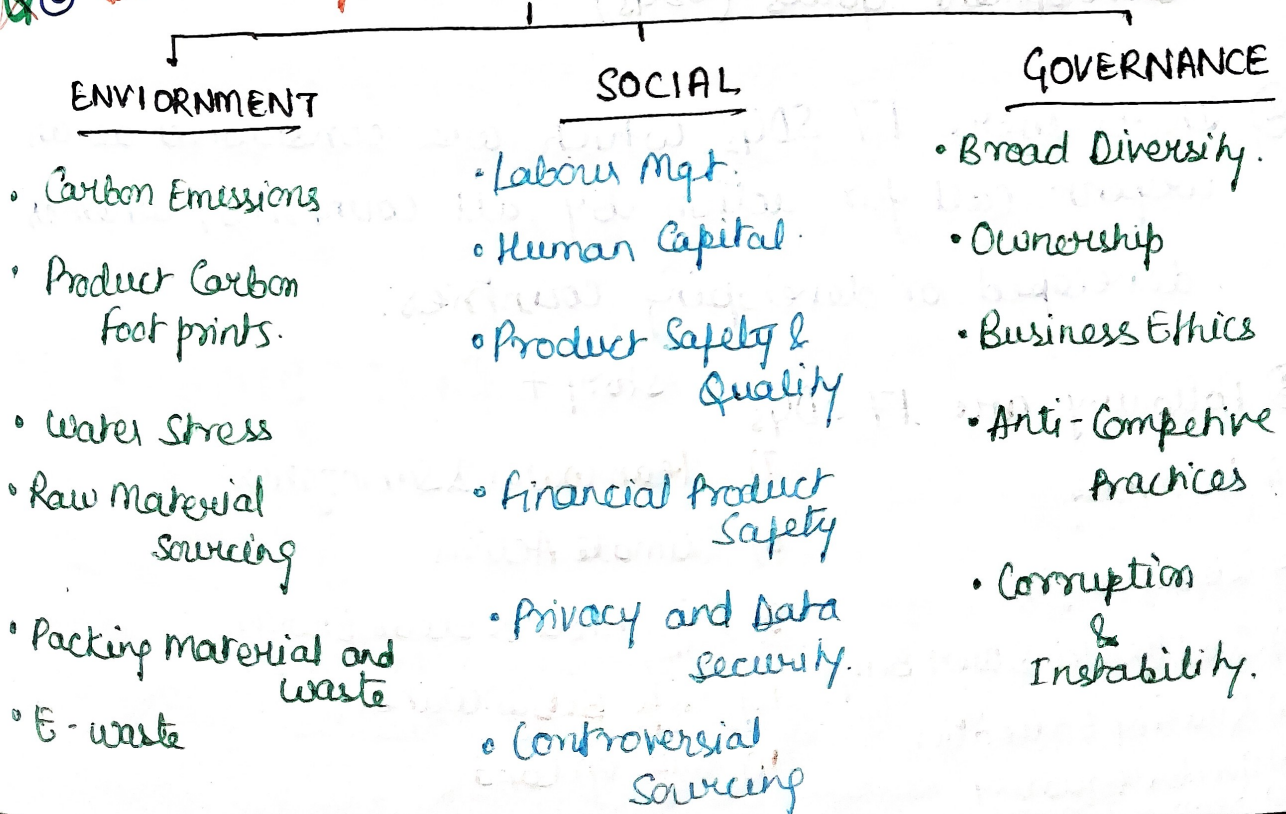 ENVIORNMENT
• Carbon Emissions
• Product Carbon
foot prints.
• Water Stress
• Raw Material
Sourcing
• Packing Material and
waste
• E-waste
SOCIAL
• Labour Mgt.
• Human Capital.
• Product Safety &
Quality
• Financial Product
Safety
• Privacy and Data
Security.
• Controversial
Sourcing
GOVERNANCE
• Broad Diversity.
• Ownership
• Business Ethics
• Anti-Competive
Practices
• Corruption
&
Instability.